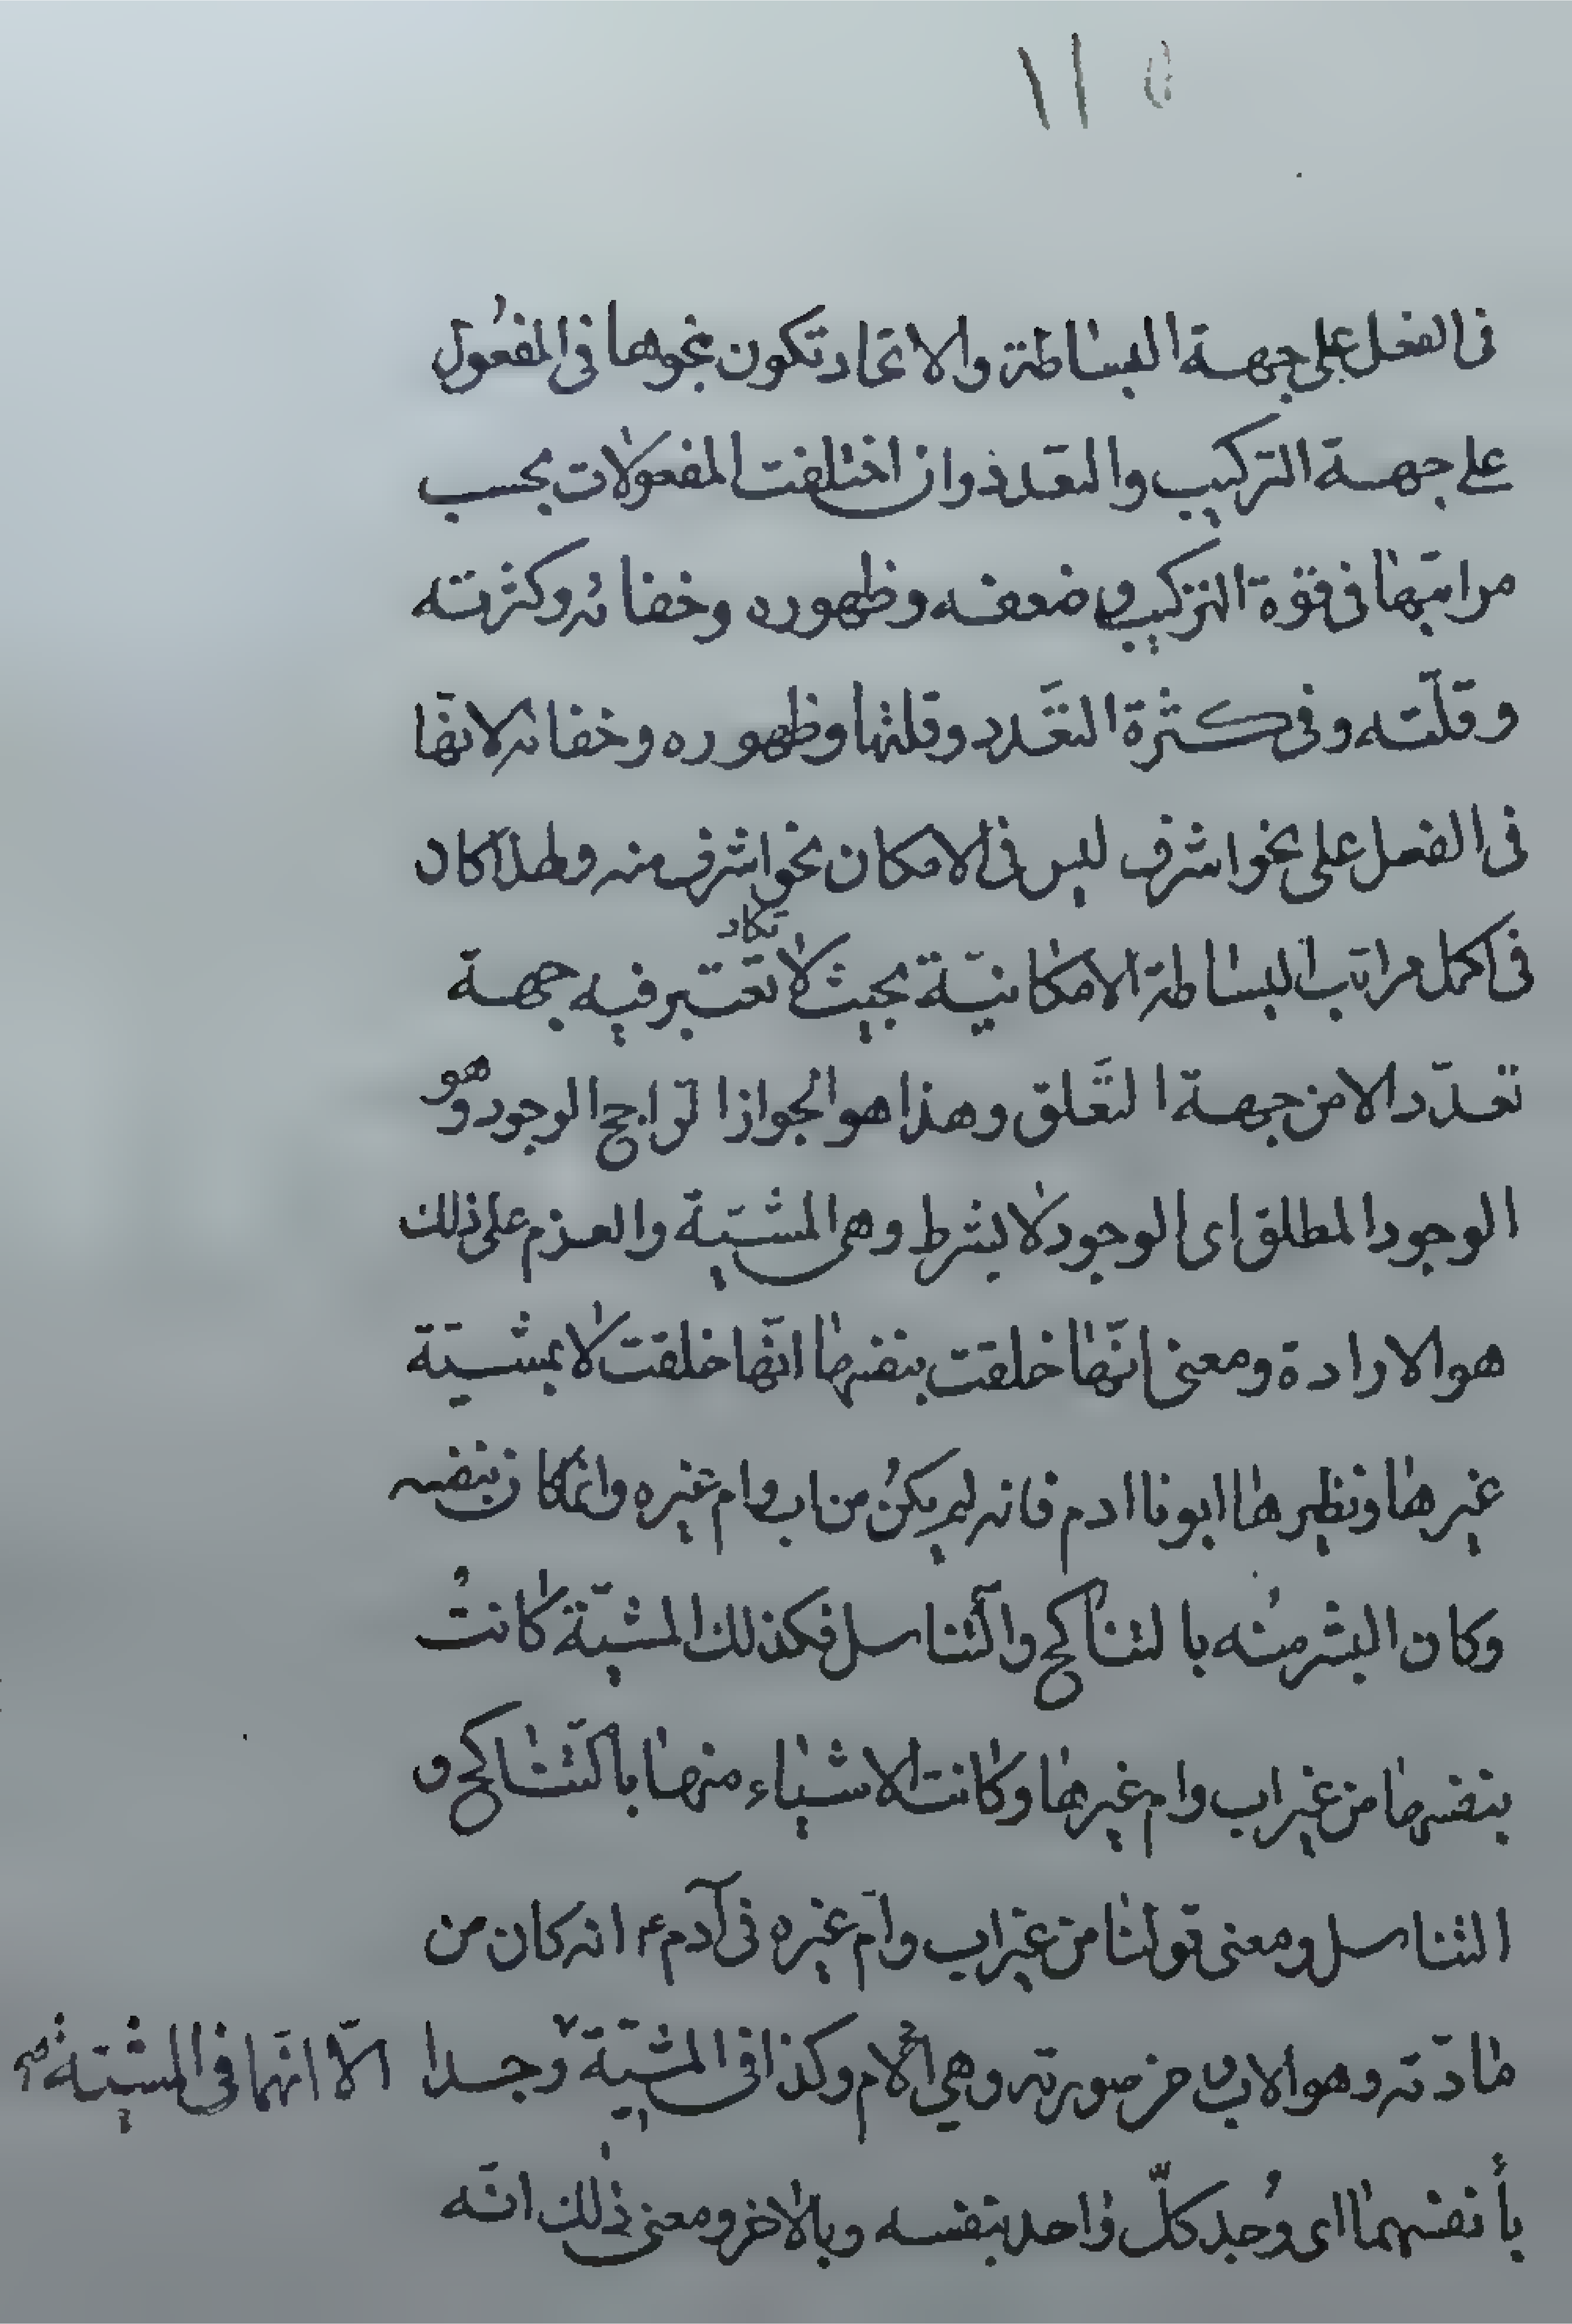 ١١٥
فى الفعل على جهة البساطة والاتحاد تكون بنحوها فى المفعول
على جهة التركيب والتعدد وان اختلفت المفعولات بحسب
مراتبها فى قوة التركيب و ضعفه وظهوره وخفائه وكثرته
وقلّته وفى كثرة التعّدد وقلتها وظهوره وخفائه لانها
فى الفعل على نحو اشرف ليس فى الامكان نحو اشرف منه ولهذا كان
فى اكمل مراتب البساطة الامكانيّة بحيث لا تكاد تعتبر فيه جهة
تعدّد الا من جهة التعّلق وهذا هو الجواز الراجح الوجود وهو
الوجود المطلق اى الوجود لا بشرط وهى المشيّة والعزم على ذلك
هو الارادة ومعنى انّها خلقت بنفسها انّها خلقت لا بمشيّة
غيرها ونظيرها ابونا ادم فانه لم يكن من اب وام غيره وانما كان بنفسه
وكان البشر منه بالتناكح والتناسل فكذلك المشيّة كانت
بنفسها من غير اب وام غيرها وكانت الاشياء منها بالتناكح و
التناسل ومعنى قولنا من غير اب وام غيره فى آدم ع انه كان من
مادّته وهو الاب و من صورته وهي الام وكذا فى المشيّة وجدا الّا انهما فى المشيّة
بأنفسهما اى وُجد كلّ واحد بنفسه وبالاخر ومعنى ذلك انّه